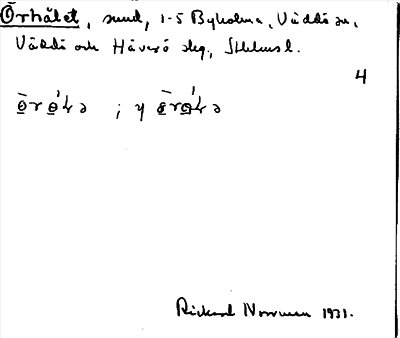 Örhålet, sund, 1-5 Byholma, Väddö sn,
Väddö och Häverö skg, Sthlms l.
4
ō̲rò̲'ɫə ; y ō̲rò̲'ɫə
Rickard Norrman 1931.